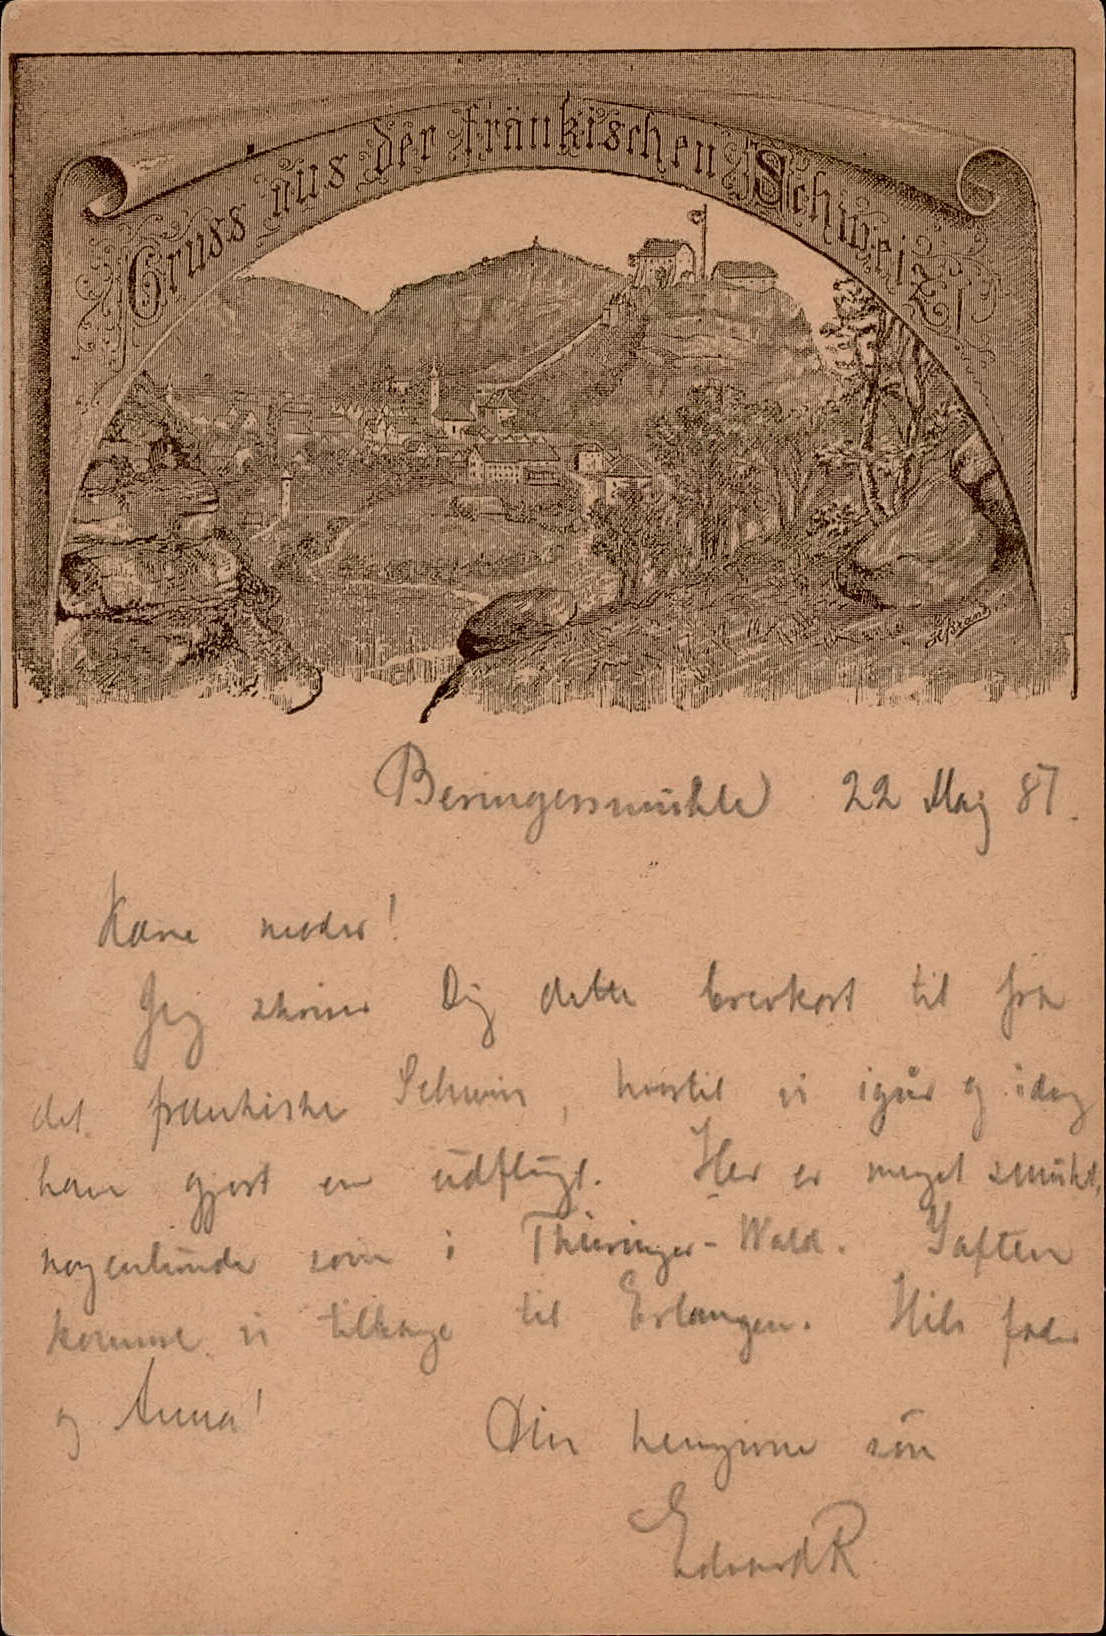 Gruss aus der fränkischen Schweiz
H. Brand
Behringersmühle 22 Maj 87.
Kære moder!
Jeg skriver Dig dette brevkort til fra
det frankiske Schweiz, hvortil vi igår og idag
have gjort en udflugt. Her er meget smukt,
nogenlunde som i Thüringer-Wald. Iaften
komme vi tilbage til Erlangen. Hils fader
og Anna!
Din hengivne søn
Edvard R